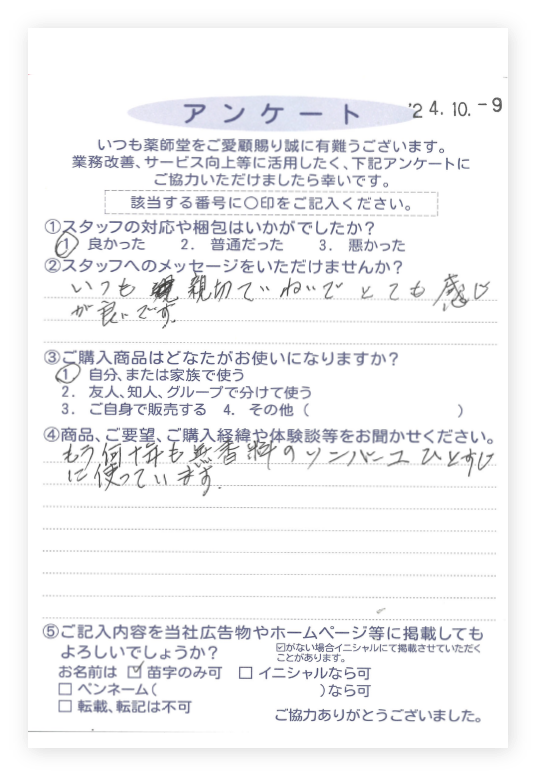 アンケート
'24.10.-9
いつも薬師堂をご愛顧賜り誠に有難うございます。
業務改善、サービス向上等に活用したく、下記アンケートに
ご協力いただけましたら幸いです。
該当する番号に○印をご記入ください。
①スタッフの対応や梱包はいかがでしたか?
1 良かった 2. 普通だった 3. 悪かった
②スタッフへのメッセージをいただけませんか?
いつも親切でいねいで とても感じ
が良いです。
③ご購入商品はどなたがお使いになりますか?
1 自分、または家族で使う
2. 友人、知人、グループで分けて使う
3. ご自身で販売する 4. その他( )
④商品、ご要望、ご購入経緯や体験談等をお聞かせください。
もう何十年も無香料のソンバーユひとすじ
に使っています。
⑤ご記入内容を当社広告物やホームページ等に掲載しても
よろしいでしょうか?
☑がない場合イニシャルにて掲載させていただく
ことがあります。
お名前は ☑ 苗字のみ可 □ イニシャルなら可
□ ペンネーム( )なら可
□ 転載、転記は不可
ご協力ありがとうございました。